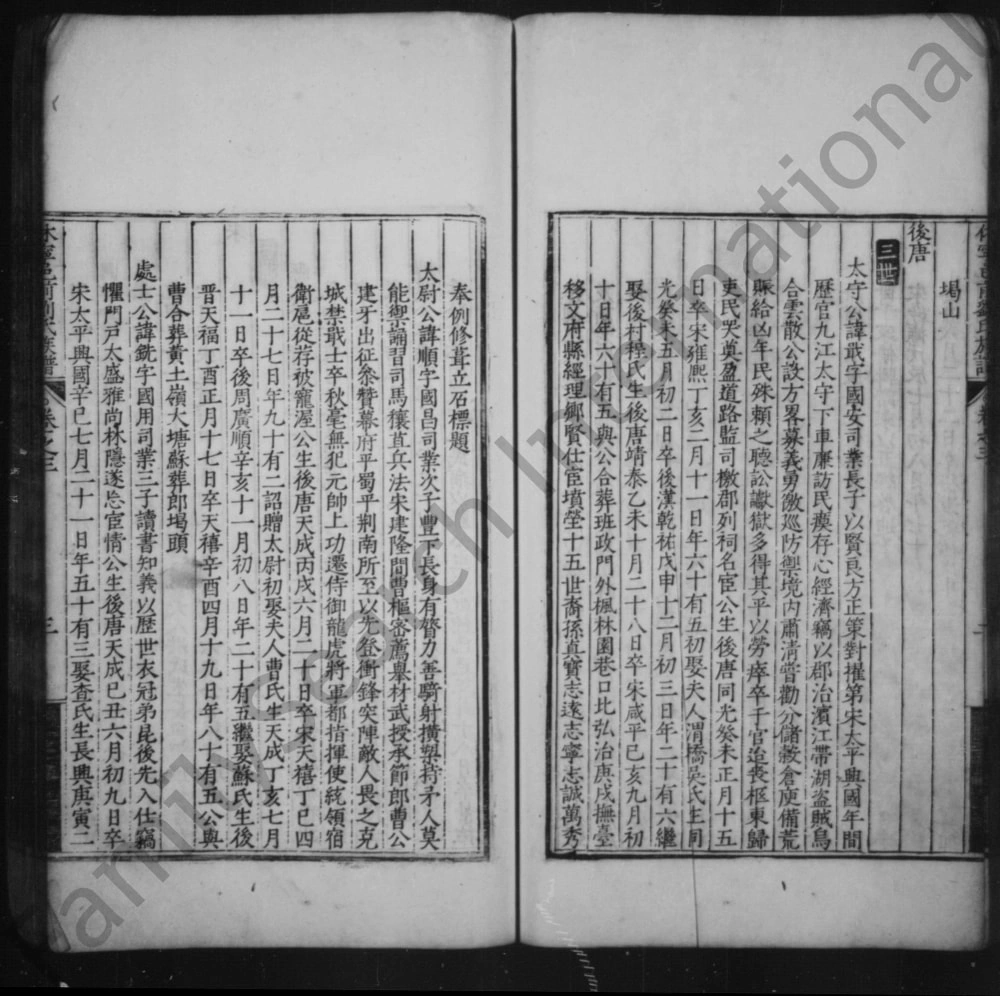 堨山
後唐
三世
太守公諱戩字國安司業長子以賢良方正策對擢第宋太平興國年間
歷官九江太守下車亷訪民瘼存心經濟竊以郡治濱江帶湖盗賊鳥
合雲散公設方畧募義勇徼巡防禦境内肅清嘗勸分儲敖倉庾備荒
賑給凶年民殊頼之聽訟讞獄多得其平以勞瘁卒于官追喪柩東歸
吏民哭奠盈道路監司檄郡列祠名宦公生後唐同光癸未正月十五
日卒宋雍熈丁亥二月十一日年六十有五初娶夫人渭橋吳氏生同
光癸未五月初二日卒後漢乾祐戊申十二月初三日年二十有六繼
娶後村程氏生後唐靖泰乙未十月二十八日卒宋咸平已亥九月初
十日年六十有五與公合葬班政門外楓林園巷口比弘治庚戌撫臺
移文府縣經理鄉賢仕宦墳塋十五世裔孫真寶志遠志寧志誠萬秀
奉例修葺立石標題
太尉公諱順字國昌司業次子豐下長身有膂力善騎射橫槊持矛人莫
能禦誦習司馬穰苴兵法宋建隆間曹樞密薦舉材武授承節郎曹公
建牙出征叅贊幕府平蜀平荆南所至以先登衝鋒突陣敵人畏之克
城禁戢士卒秋毫無犯元帥上功遷侍御龍虎將軍都指揮使統領宿
衛扈從存被寵渥公生後唐天成丙戌六月二十日卒宋天禧丁巳四
月二十七日年九十有二詔贈太尉初娶夫人曹氏生天成丁亥七月
十一日卒後周廣順辛亥十一月初八日年二十有五繼娶蘇氏生後
晉天福丁酉正月十七日卒天禧辛酉四月十九日年八十有五公與
曹合葬黄土嶺大塘蘇葬郎堨頭
處士公諱銑字國用司業三子讀書知義以歷世衣冠弟昆後先入仕竊
懼門戸太盛雅尚林隱遂忘宦情公生後唐天成已丑六月初九日卒
宋太平興國辛巳七月二十一日年五十有三娶查氏生長興庚寅二